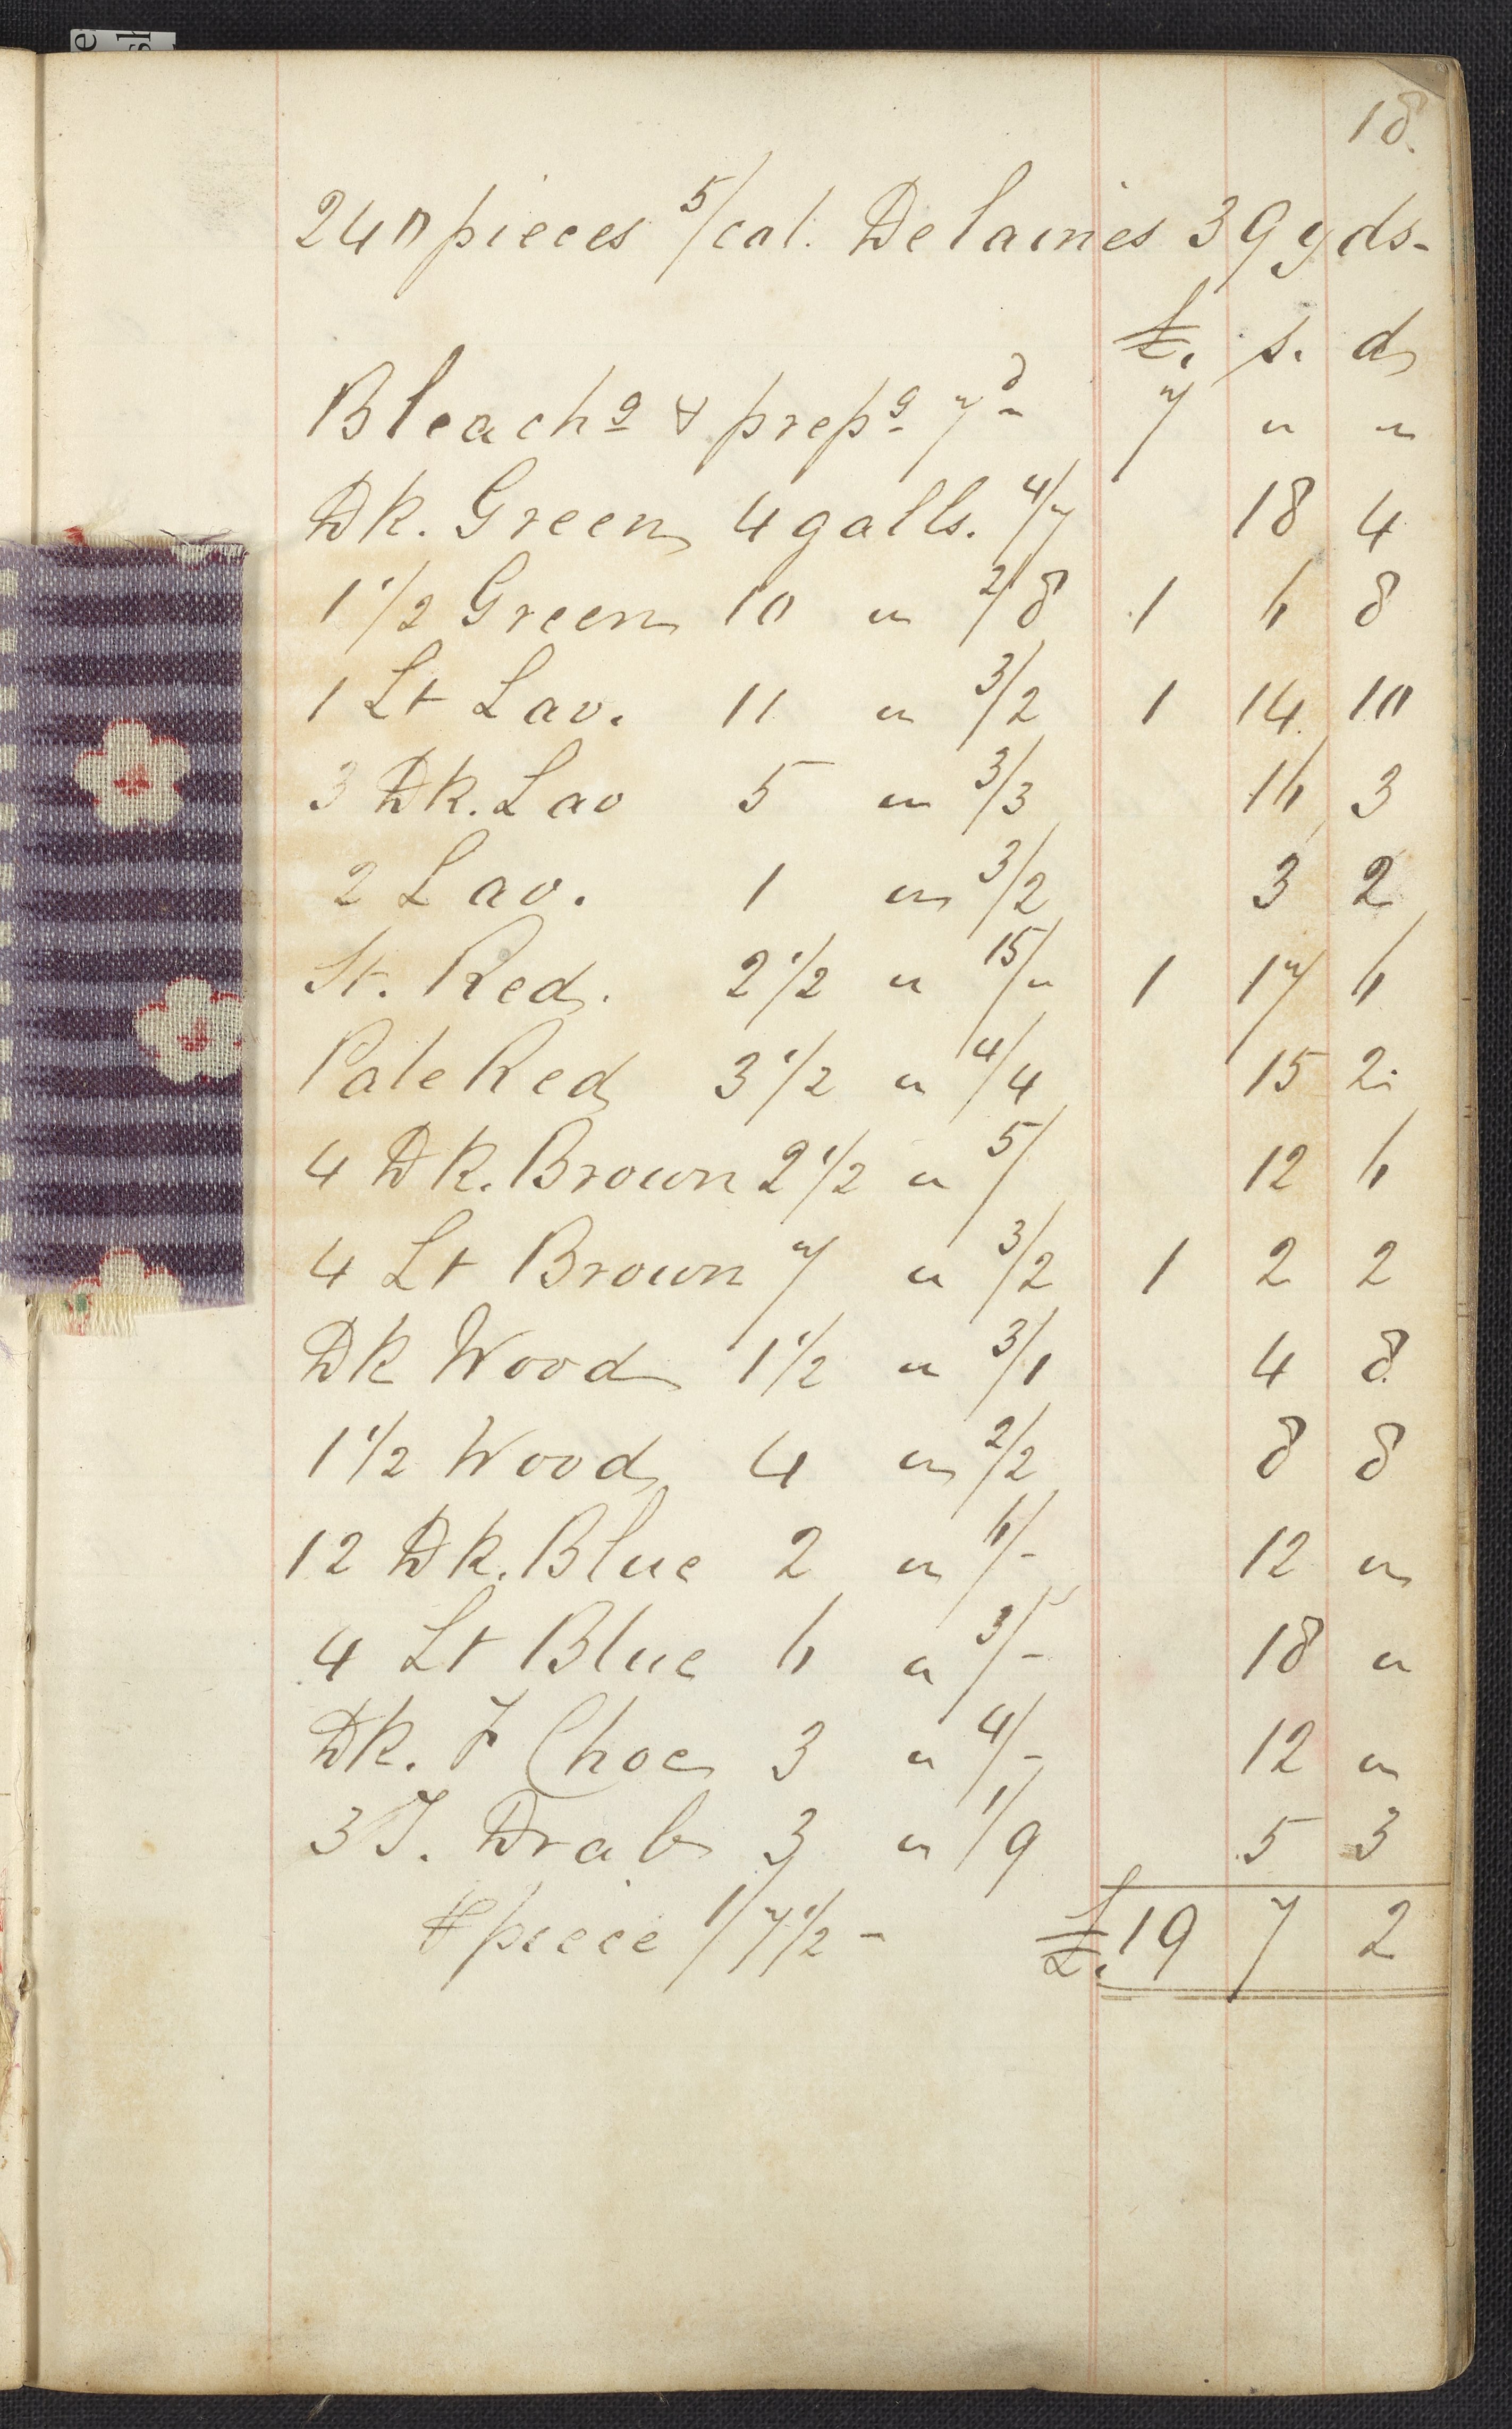 18.
240 pieces 5/col. Delaines 39 yds-
£. s. d
Bleachg & prepg 7d " 7 " "
Dk. Green 4 galls. 4/7 18 4
1 1/2 Green 10 " 2/8 1 6 8
1 Lt Lav. 11 " 3/2 1 14 10
3 Dk. Lav 5 " 3/3 16 3
2 Lav. 1 " 3/2 3 2
St. Red. 2 1/2 " 15/" 1 17 6
Pale Red 3 1/2 " 4/4 15 2
4 Dk. Brown 2 1/2 " 5/ 12 6
4 Lt Brown 7 " 3/2 1 2 2
Dk Wood 1 1/2 " 3/1 4 8
1 1/2 Wood 4 " 2/2 8 8
12 Dk. Blue 2 " 6/- 12 "
4 Lt Blue 6 " 3/- 18 "
Dk. F Choc 3 " 4/- 12 "
3 F. Drab 3 " 1/9 5 3
℔ piece 1/7 1/2 - £. 19 7 2